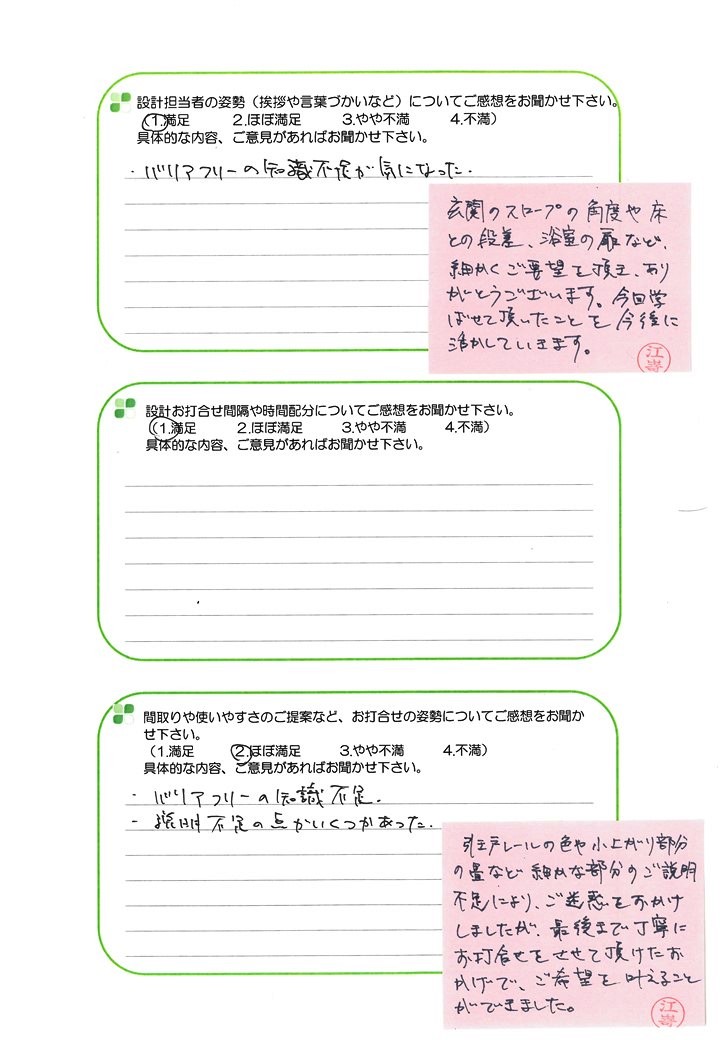 設計担当者の姿勢（挨拶や言葉づかいなど）についてご感想をお聞かせ下さい。
（1.満足 2.ほぼ満足 3.やや不満 4.不満）
具体的な内容、ご意見があればお聞かせ下さい。
・バリアフリーの知識不足が気になった.
玄関のスロープの角度や床
との段差、浴室の扉など、
細かくご要望を頂き、あり
がとうございます。今回学
ばせて頂いたことを今後に
活かしていきます。
江嵜
設計お打合せ間隔や時間配分についてご感想をお聞かせ下さい。
（1.満足 2.ほぼ満足 3.やや不満 4.不満）
具体的な内容、ご意見があればお聞かせ下さい。
間取りや使いやすさのご提案など、お打合せの姿勢についてご感想をお聞か
せ下さい。
（1.満足 2.ほぼ満足 3.やや不満 4.不満）
具体的な内容、ご意見があればお聞かせ下さい。
・バリアフリーの知識不足.
・説明不足の点がいくつかあった.
引き戸レールの色や小上がり部分
の畳など細かな部分のご説明
不足により、ご迷惑をおかけ
しましたが、最後まで丁寧に
お打合せをさせて頂けたお
かげで、ご希望を叶えること
ができました。
江嵜